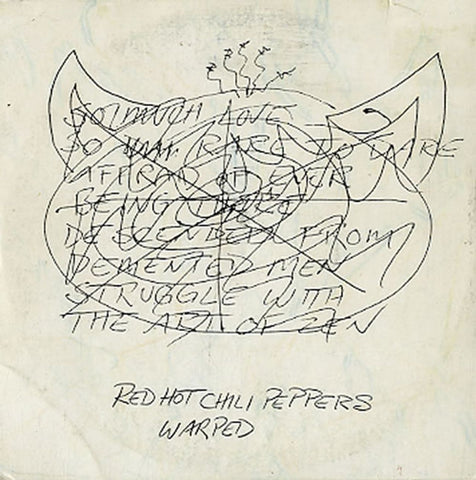 SO MUCH LOVE
SO RARE TO DARE
AFRAID OF EVER
BEING
DESCENDED FROM
DEMENTED MEN
STRUGGLE WITH
THE ART OF ZEN
RED HOT CHILI PEPPERS
WARPED